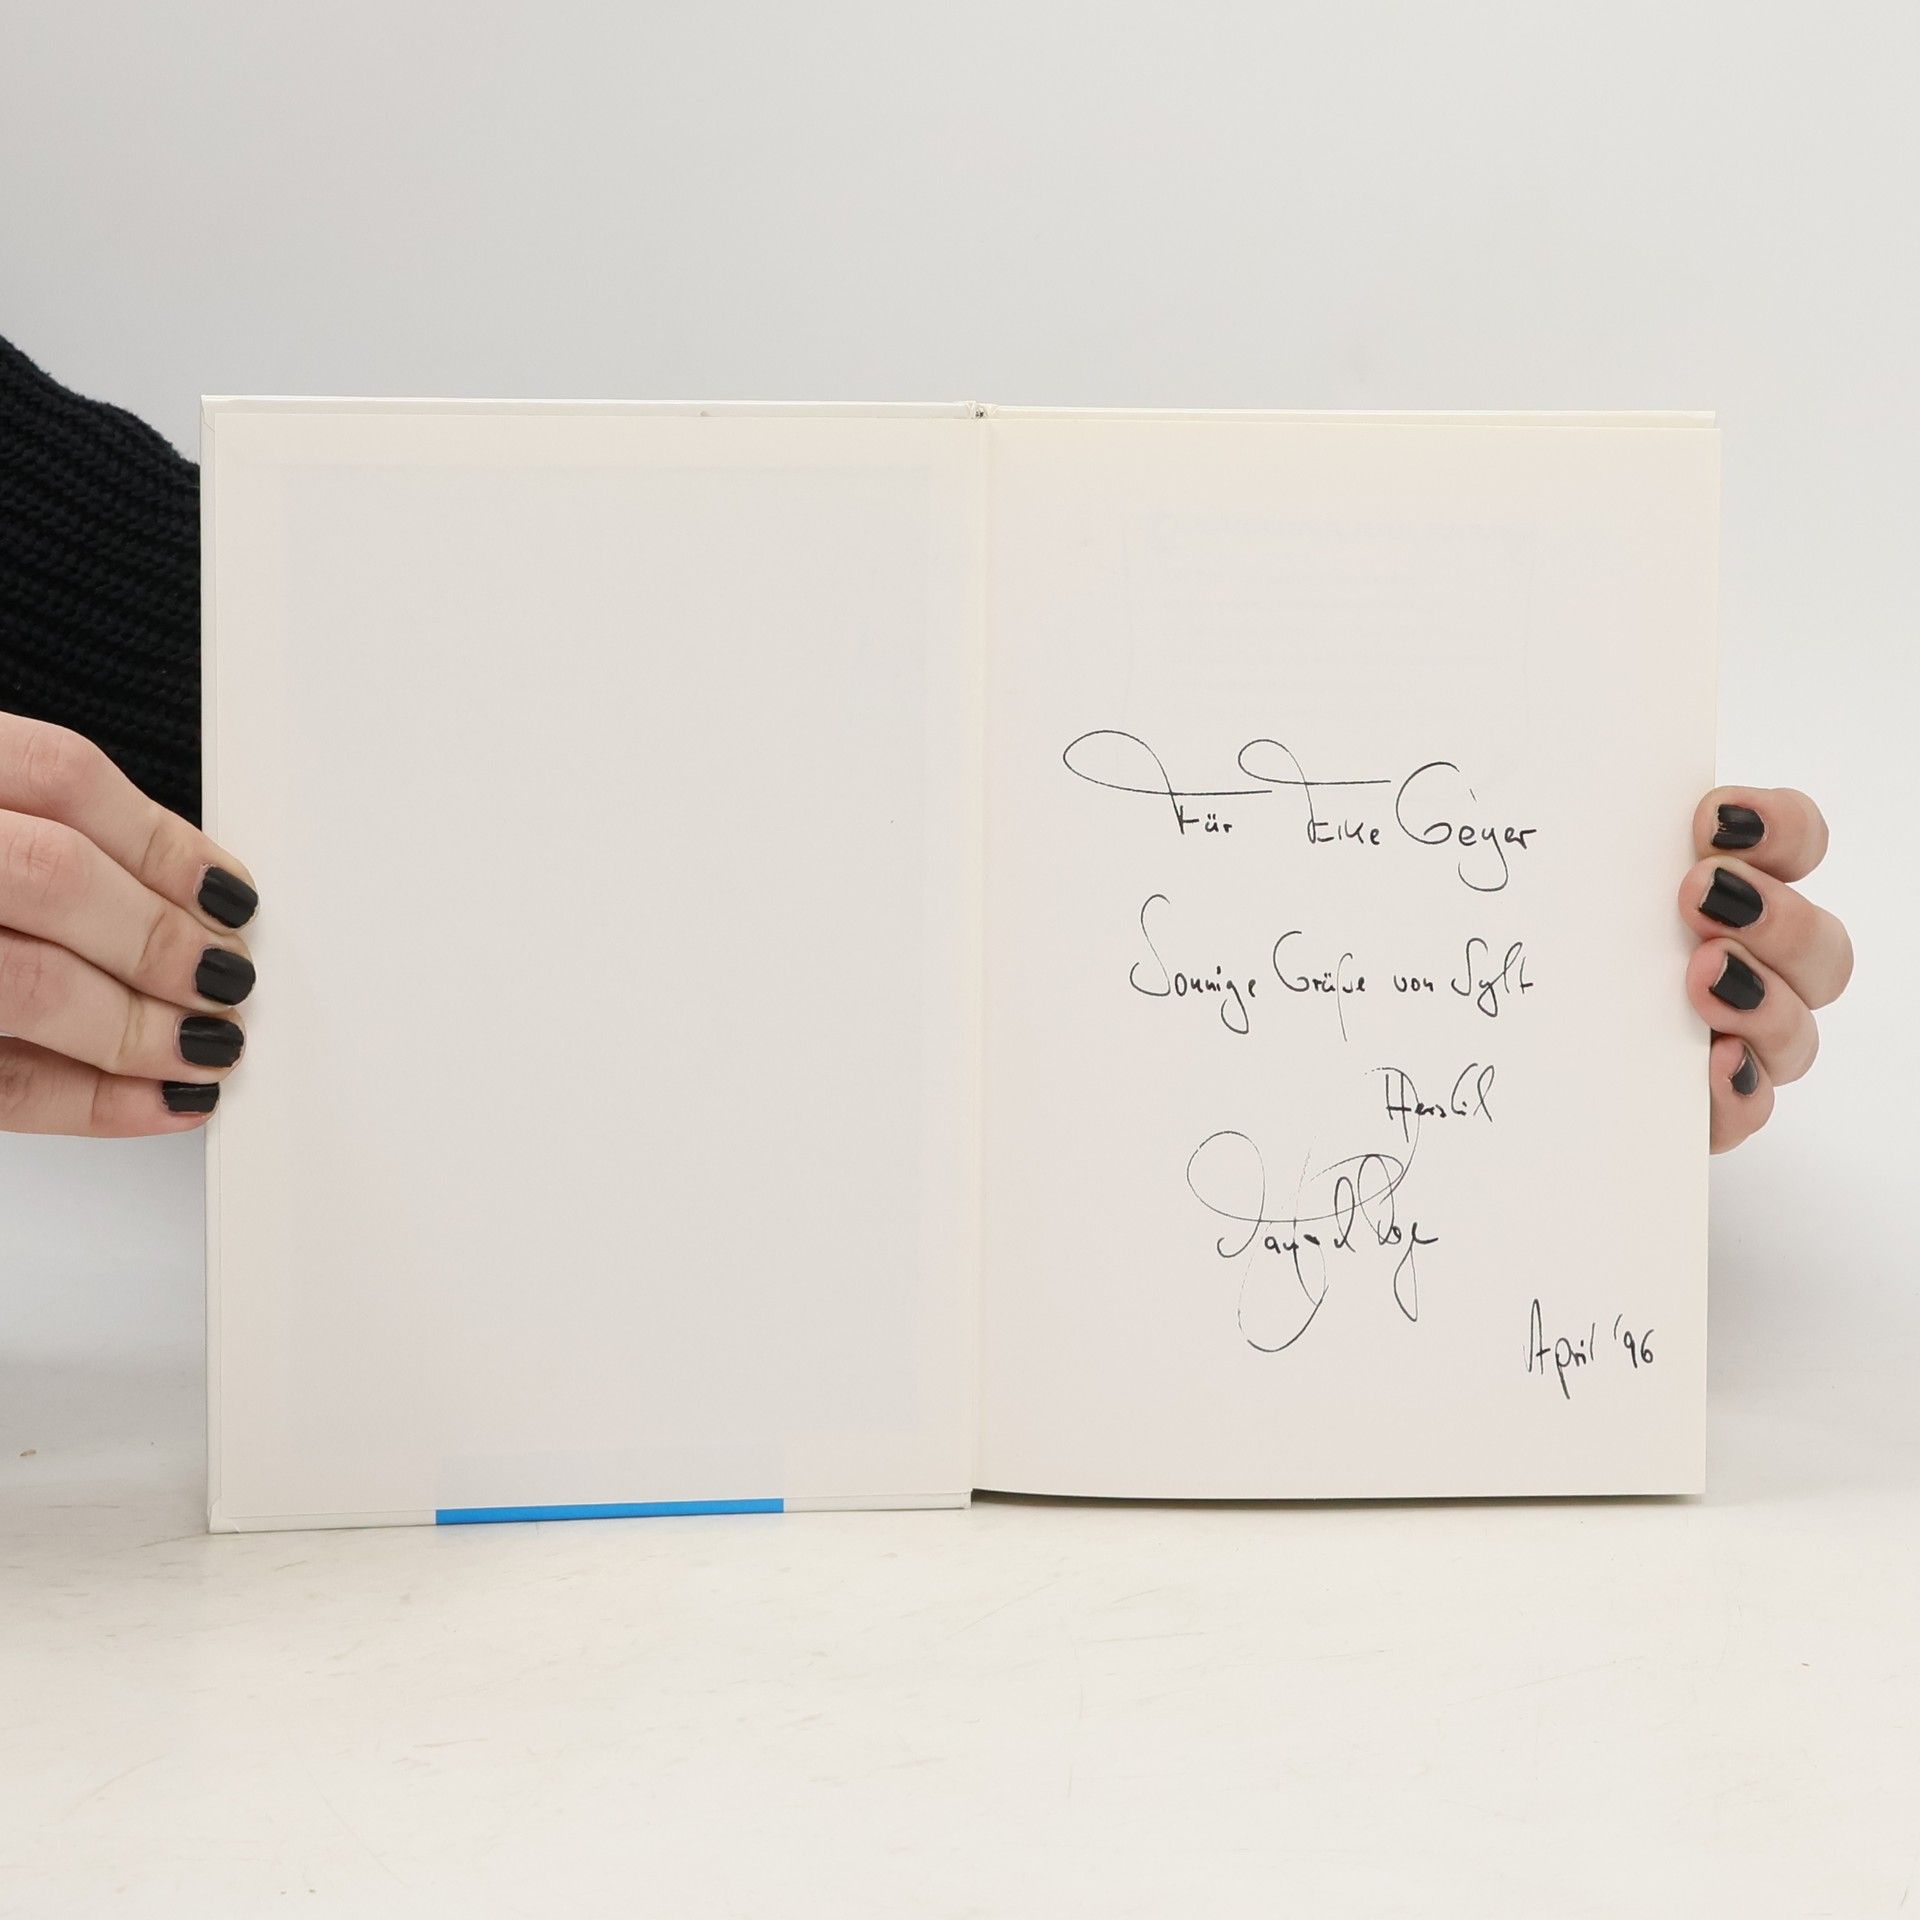 Für Eike Geyer
Sonnige Grüße von Sylt
Herzlich
April '96